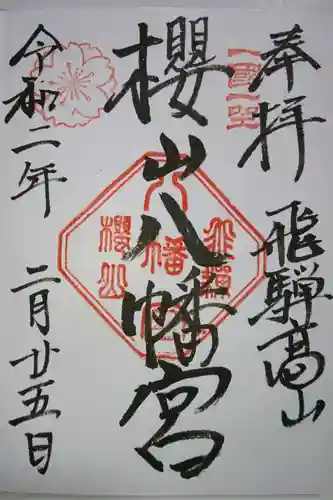 奉拝 飛騨高山
一国一社
櫻山八幡宮
八幡宮
櫻山
令和二年 二月廿五日